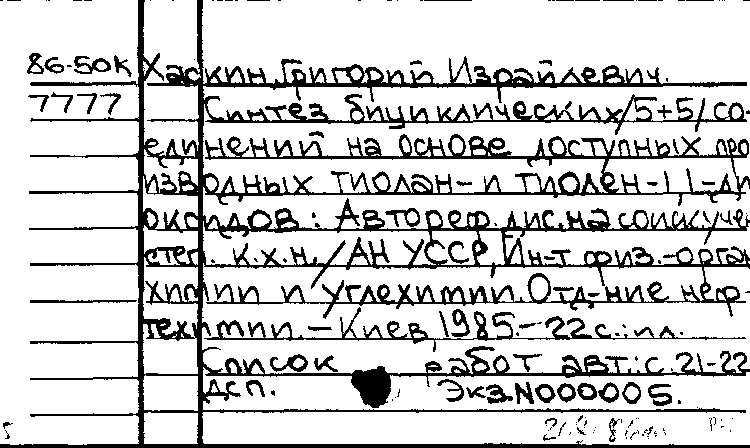 86-50К Хаскин, Григорий Израйлевич.
7777 Синтез бициклических /5+5/ со-
единений на основе доступных про
изводных тиолан- и тиолен-1,1-ди
оксидов: Автореф.дис.на соиск.учен
степ. к.х.н./АН УССР, Ин-т физ.-орган
химии и углехимии.Отд-ние неф-
техимии.-Киев,1985.-22с.:ил.
Список работ авт.:с.21-22
ДСП. Экз.N000005.
5